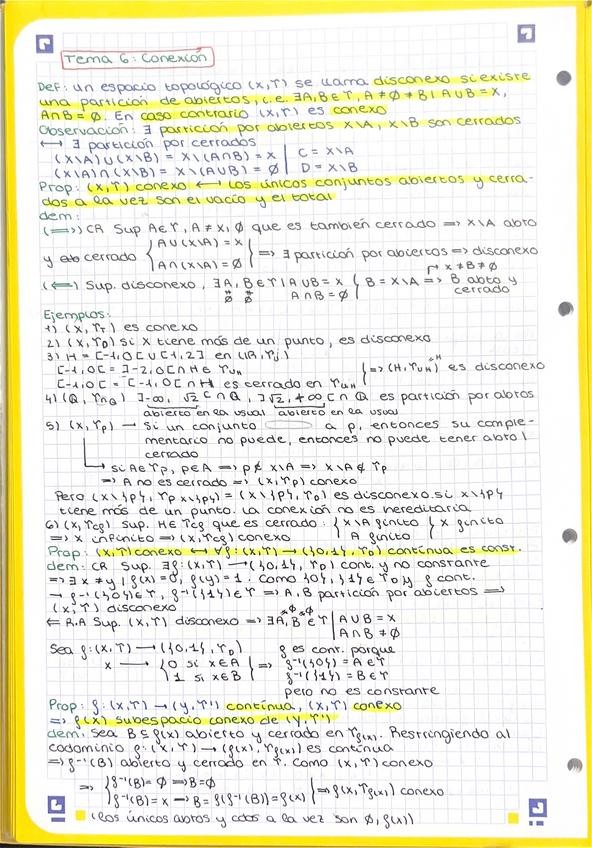 Tema 6: Conexión
Def: un espacio topológico (X,Τ) se llama disconexo si existe
una partición de abiertos, i.e. ∃A,B∈Τ, A≠∅≠B | A∪B=X,
A∩B=∅. En caso contrario (X,Τ) es conexo
Observación: ∃ partición por abiertos X\A, X\B son cerrados
⟷ ∃ partición por cerrados
(X\A)∪(X\B) = X\(A∩B) = X | C = X\A
(X\A)∩(X\B) = X\(A∪B) = ∅ | D = X\B
Prop: (X,Τ) conexo ⟷ Los únicos conjuntos abiertos y cerra-
dos a la vez son el vacío y el total
dem:
(⟹) CR Sup A∈Τ, A≠X,∅ que es también cerrado ⟹ X\A abto
y cerrado { A∪(X\A)=X
A∩(X\A)=∅ } ⟹ ∃ partición por abiertos ⟹ disconexo
(⟸) Sup. disconexo, ∃A,B∈Τ | A∪B=X
A∩B=∅ { B=X\A ⟹ B abto y
cerrado
X≠B≠∅
Ejemplos:
1) (X,Τ_T) es conexo
2) (X,Τ_D) si X tiene más de un punto, es disconexo
3) H = [-1,0[∪[1,2] en (ℝ,Τ_u)
[-1,0[ = ]-2,0[∩H ∈ Τ_uH
[-1,0[ = [-1,0[∩H es cerrado en Τ_uH } ⟹ (H,Τ_uH) es disconexo
4) (ℚ,Τ_uℚ) ]-∞,√2[∩ℚ, ]√2,+∞[∩ℚ es partición por abtos
abierto en la usual abierto en la usual
5) (X,Τ_p) → Si un conjunto a p, entonces su comple-
mentario no puede, entonces no puede tener abto y
cerrado
↳ si A∈Τ_p, p∈A ⟹ p∉X\A ⟹ X\A∉Τ_p
⟹ A no es cerrado ⟹ (X,Τ_p) conexo
Pero (X\{p}, Τ_p X\{p}) = (X\{p}, Τ_D) es disconexo si X\{p}
tiene más de un punto. La conexión no es hereditaria
6) (X,Τ_CF) Sup. H∈Τ_CF que es cerrado { X\A finito
A finito { X finito
⟹ X infinito ⟹ (X,Τ_CF) conexo
Prop: (X,Τ) conexo ⟷ ∀f: (X,Τ) → ({0,1},Τ_D) continua es const.
dem: CR Sup. ∃f: (X,Τ) → ({0,1},Τ_D) cont. y no constante
⟹ ∃x≠y | f(x)=0, f(y)=1. Como {0},{1}∈Τ_D y f cont.
→ f⁻¹({0})∈Τ, f⁻¹({1})∈Τ ⟹ A,B partición por abiertos ⟹
(X,Τ) disconexo
⇐ R.A Sup. (X,Τ) disconexo ⟹ ∃A,B∈Τ | A∪B=X
A∩B≠∅
Sea f: (X,Τ) → ({0,1},Τ_D)
x → { 0 si x∈A
1 si x∈B ⟹
f es cont. porque
f⁻¹({0}) = A∈Τ
f⁻¹({1}) = B∈Τ
pero no es constante
Prop: f: (X,Τ) → (Y,Τ') continua, (X,Τ) conexo
⟹ f(X) subespacio conexo de (Y,Τ')
dem: Sea B⊆f(X) abierto y cerrado en Τ_f(X). Restringiendo al
codominio f: (X,Τ) → (f(X),Τ_f(X)) es continua
⟹ f⁻¹(B) abierto y cerrado en Τ. Como (X,Τ) conexo
⟹ { f⁻¹(B)=∅ ⟹ B=∅
f⁻¹(B)=X ⟹ B=f(f⁻¹(B))=f(X) } ⟹ f(X,Τ_f(X)) conexo
(los únicos abtos y cdos a la vez son ∅, f(X))